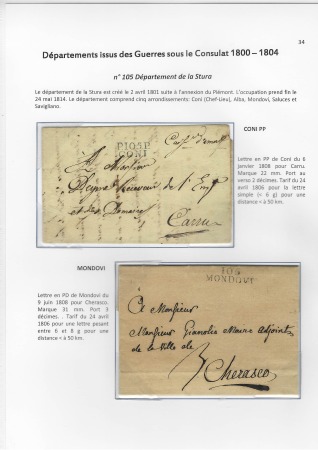 34
Départements issus des Guerres sous le Consulat 1800 – 1804
n° 105 Département de la Stura
Le département de la Stura est créé le 2 avril 1801 suite à l'annexion du Piémont. L'occupation prend fin le
24 mai 1814. Le département comprend cinq arrondissements: Coni (Chef-Lieu), Alba, Mondovi, Saluces et
Savigliano.
CONI PP
P105P
CONI
A Monsieur
Receveur de l'
et des Domaines
Carru
Lettre en PP de Coni du 6
janvier 1808 pour Carru.
Marque 22 mm. Port au
verso 2 décimes. Tarif du 24
avril 1806 pour la lettre
simple (< 6 g) pour une
distance < à 50 km.
MONDOVI
Lettre en PD de Mondovi du
9 juin 1808 pour Cherasco.
Marque 31 mm. Port 3
décimes. . . Tarif du 24 avril
1806 pour une lettre pesant
entre 6 et 8 g pour une
distance < à 50 km.
105
MONDOVI
A Monsieur
Monsieur Maire Adjoint
de la ville de
Cherasco